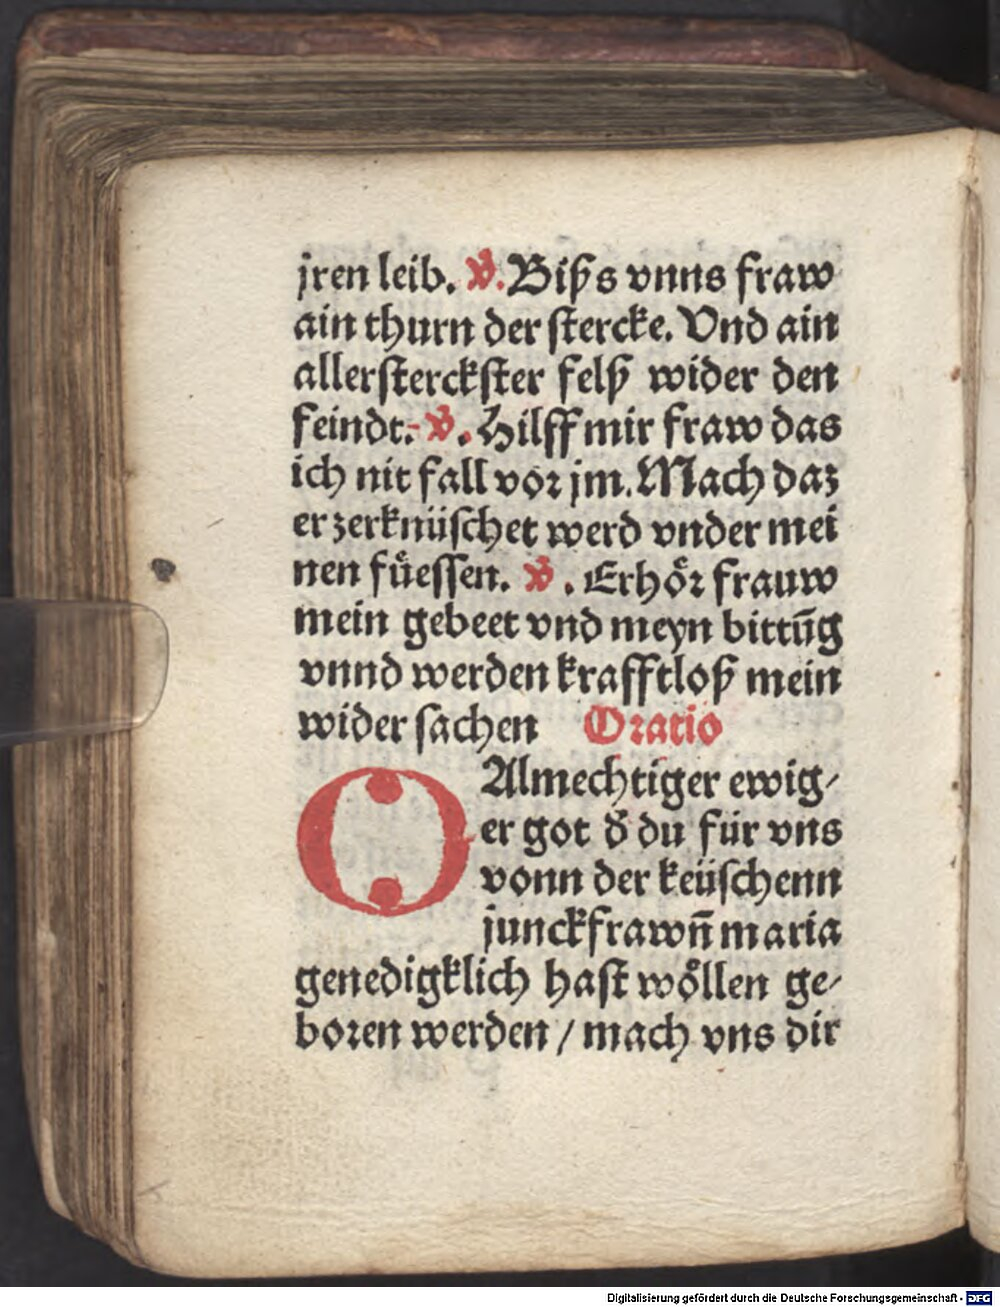 jren leib. ℣. Biß s vnns fraw
ain thurn der stercke. Vnd ain
allersterckster felß wider den
feindt. ℣. Hilff mir fraw das
ich nit fall vor jm. Mach daz
er zerknüschet werd vnder mei
nen fuͤessen. ℣. Erhoͤr frauw
mein gebeet vnd meyn bittūg
vnnd werden krafftloß mein
wider sachen Oratio
O Almechtiger ewig⸗
er got d̕ du für vns
vonn der keüschenn
junckfrawn̄ maria
genedigklich hast woͤllen ge⸗
boren werden / mach vns dir
Digitalisierung gefördert durch die Deutsche Forschungsgemeinschaft - DFG